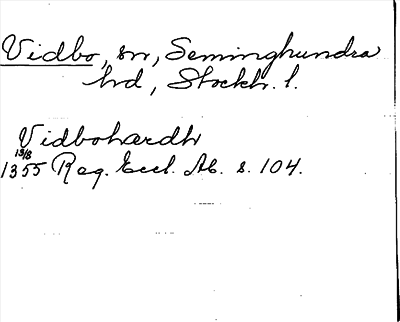 Vidbo, sn, Seminghundra
hd, Stockh. l.
Vidbohærdh
13/8
1355 Reg. Eccl. Ab. s. 104.